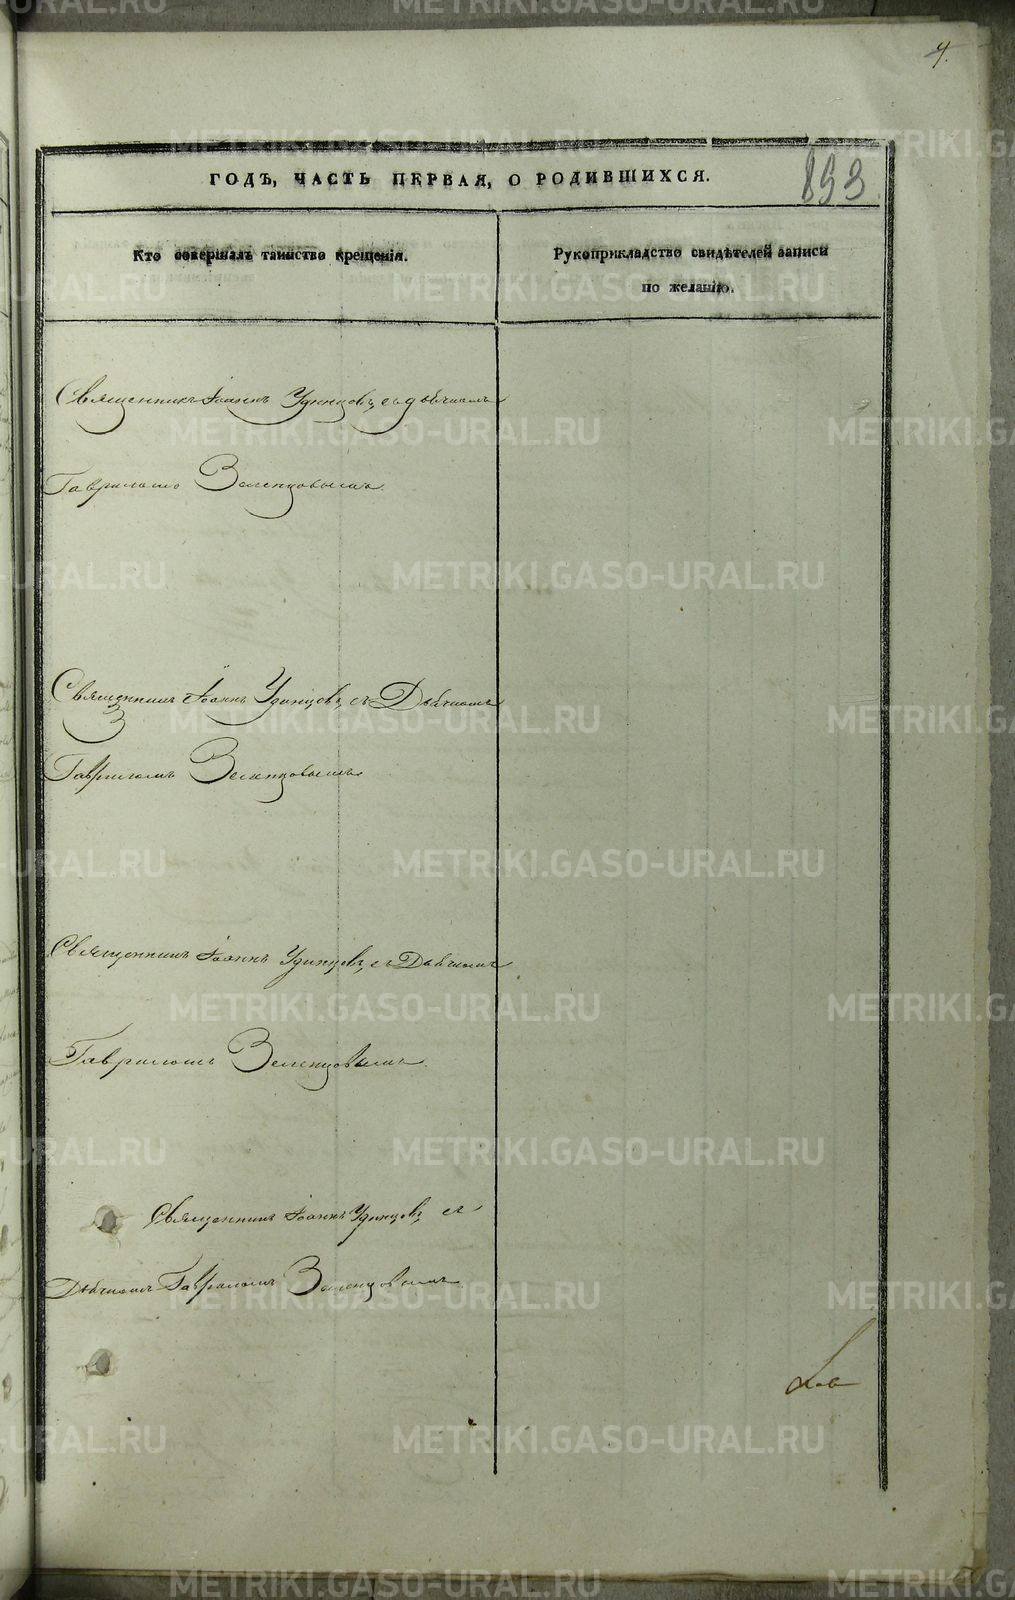 4.
893
ГОДЪ, ЧАСТЬ ПЕРВАЯ, О РОДИВШИХСЯ.
Кто совершалъ таинство крещенія.
Рукоприкладство свидѣтелей записи
по желанію.
Священникъ Іоаннъ Удинцовъ, съ дьячкомъ
Гавриломъ Зеленцовымъ.
Священникъ Іоаннъ Удинцовъ, съ Дьячкомъ
Гавриломъ Зеленцовымъ
Священникъ Іоаннъ Удинцовъ, съ Дьячкомъ
Гавриломъ Зеленцовымъ.
Священникъ Іоаннъ Удинцовъ, съ
Дьячкомъ Гавриломъ Зеленцовымъ
METRIKI.GASO-URAL.RU